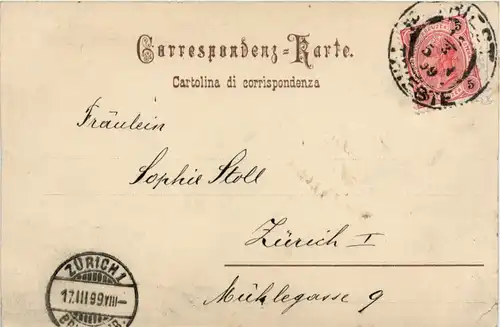 Correspondenz-Karte.
Cartolina di corrispondenza
Fräulein
Sophie Stoll
Zürich I
Mühlegasse 9
ZÜRICH 1
17.III 99 VIII-
TRIESTE
5
5